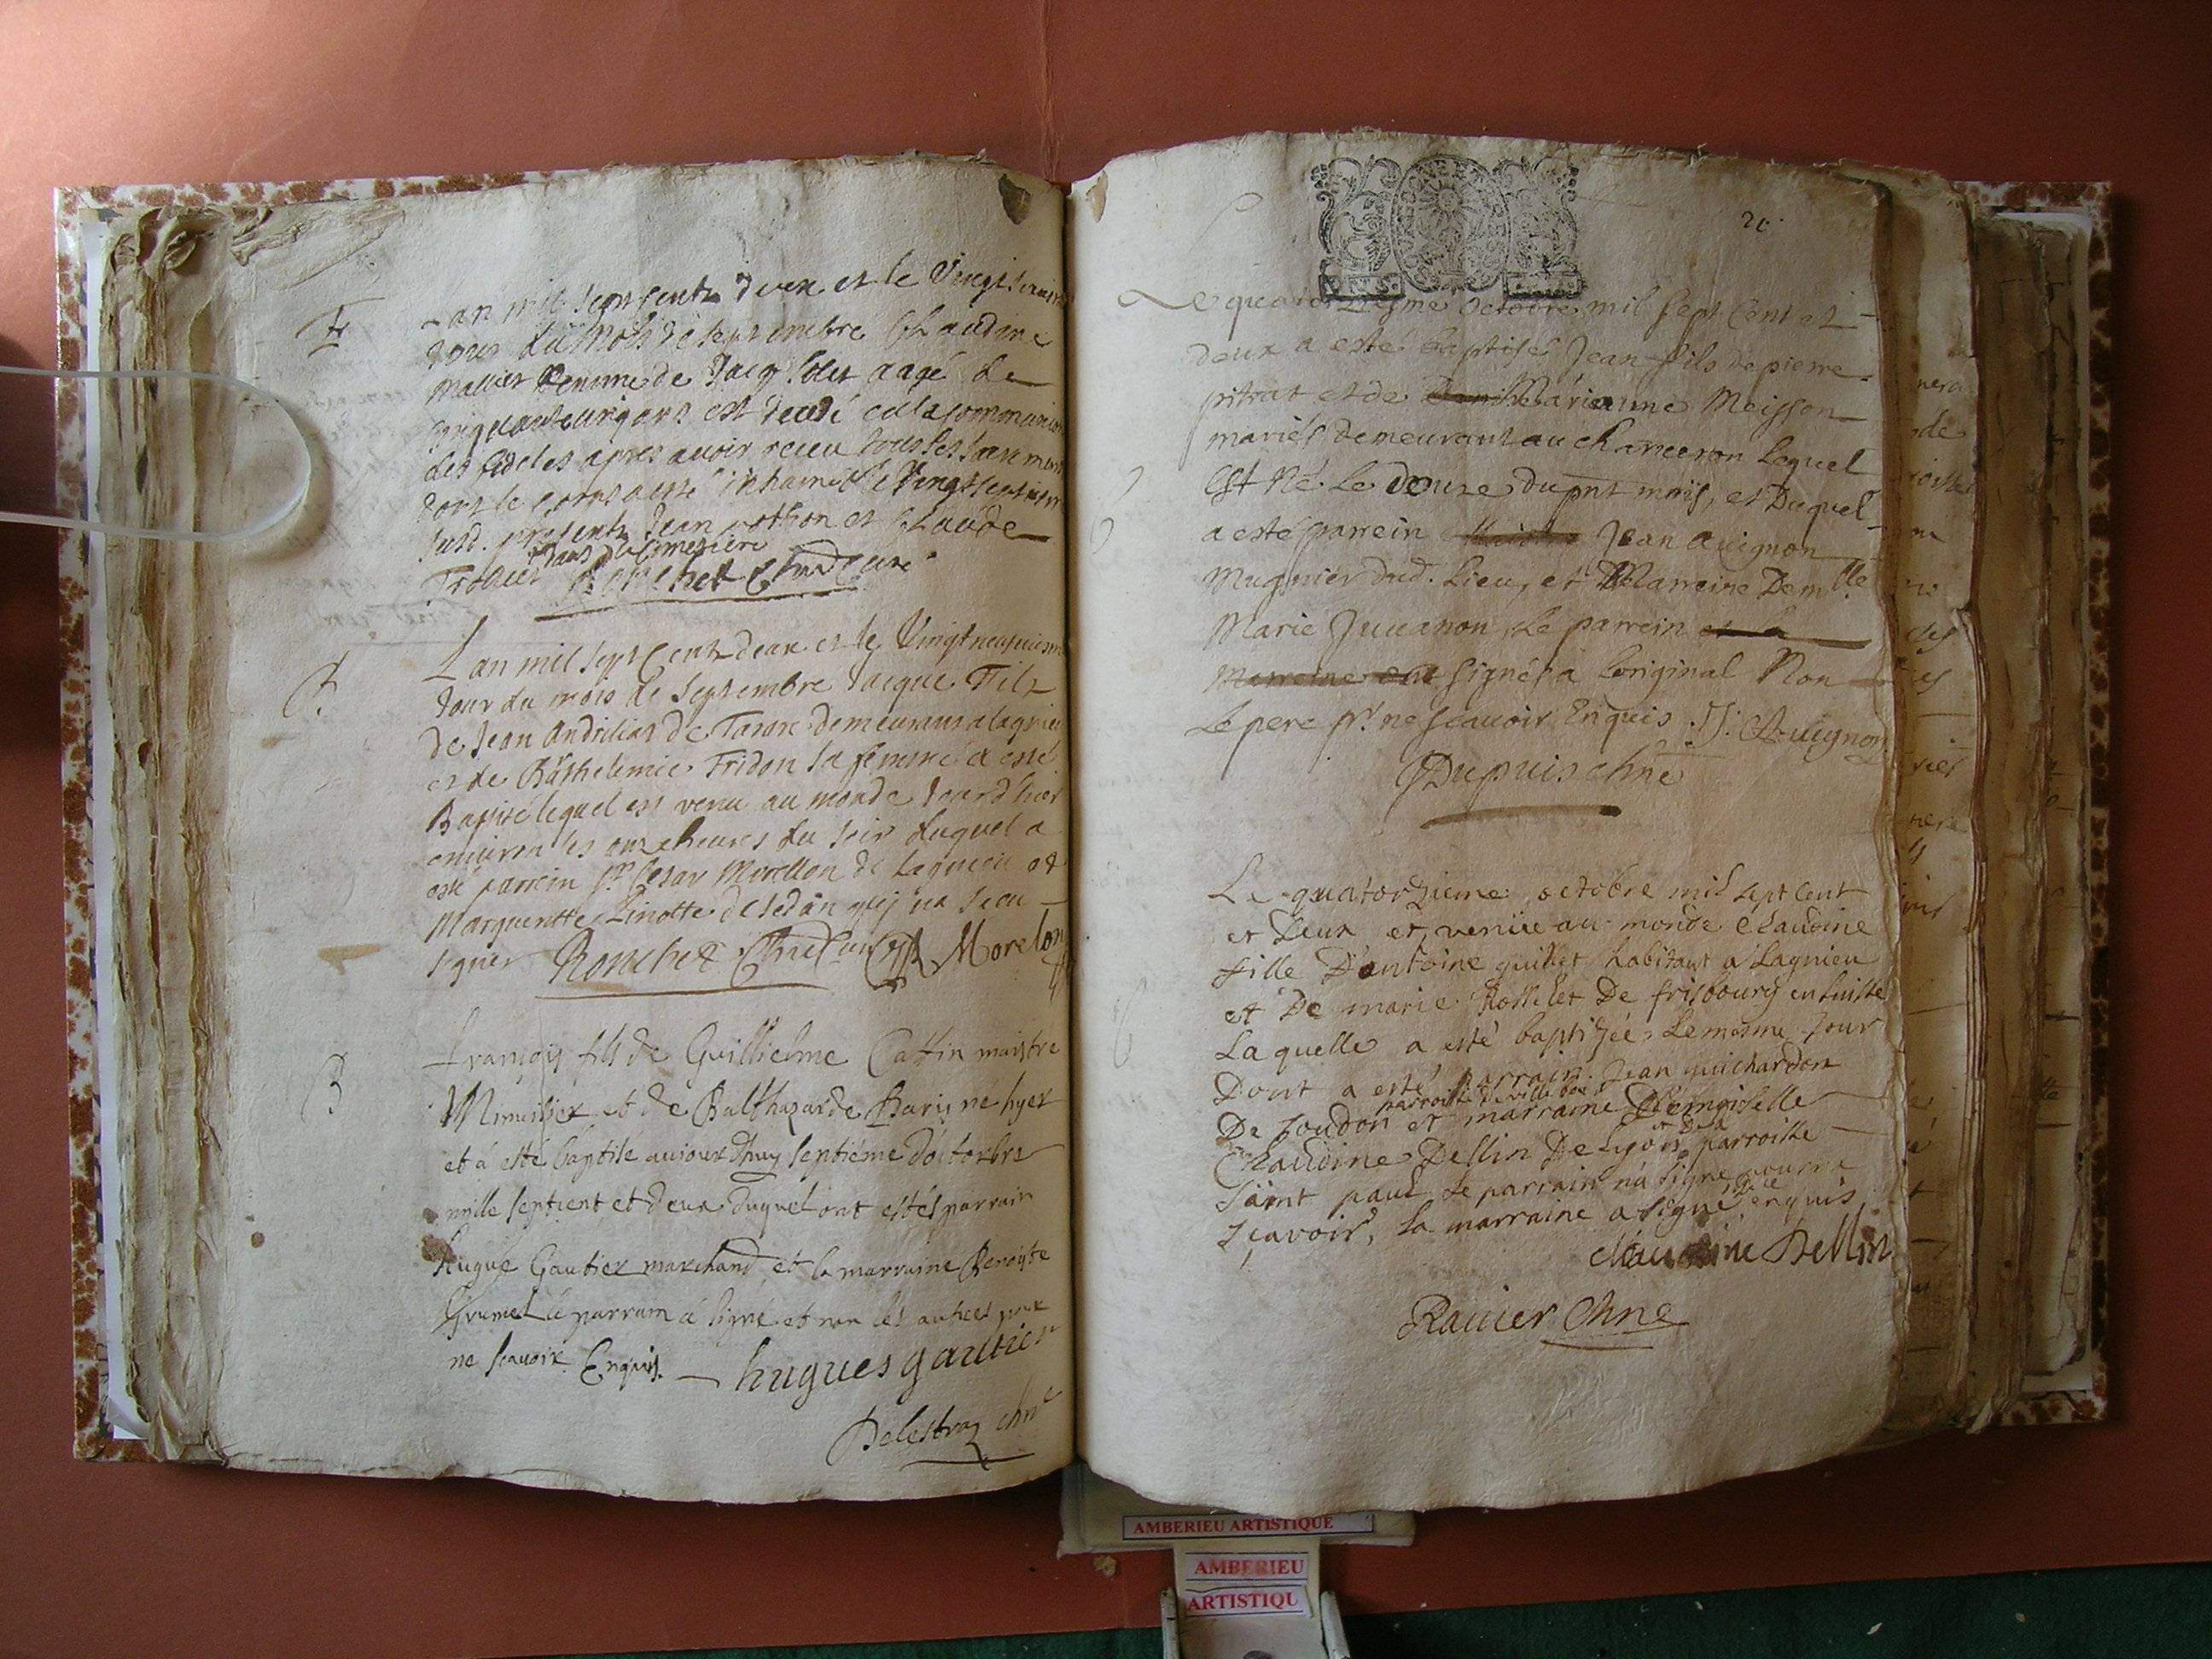 Lan mil sept cents deux et le Vingt
Jour du Mois de Septembre Claudine
Mallet femme de Jacq aagé de
cinquante cinq ans est decedé en la communion
des fideles apres avoir receu tous les sacrements
dont le corps a esté inhumé le Vingt
susd. presents Jean et Claude
dans du cimetiere
Ronchet Chne Curé
Lan mil sept Cents deux et le Vingt neufuiesme
Jour du mois de Septembre Jacque Filz
de Jean de Tarare demeurant a lagnieu
et de Barthelemie Fridon sa femme a esté
Baptisé lequel est venu au monde Jourd'hier
environ les onze heures du soir duquel a
esté parrein Sr Cesar Morellon de Lagnieu et
Marguerite Linotte de Sedan qui n'a sceu
signer Ronchet Chne Curé Morelon
B
François fils de Guillielme Cattin maistre
Menuisier et de Balthazarde Baris né hyer
et à esté baptisé auiourdhuy septiéme d'octobre
mille septcent et deux duquel ont estés parrain
hugue Gautier marchand et la marraine Benoiste
Grumel le parrain à signé et non les autres pour
ne scavoir Enquis. — hugues gautier
Delestraz chne
20
Le quatorziesme octobre mil sept Cent et
deux a esté baptisé Jean fils de pierre
pitrat et de Marianne Meisson
mariés demeurant au charveyron lequel
Est Né le douze du pnt mois, et Duquel
a esté parrein Jean avignon
Mugnier dud. Lieu, et Marreine Demlle
Marie Juvanon Le parrein et la
Marreine ont signés a loriginal Non
Le pere pr. ne scavoir Enquis. J: Auignon
Dupuis chne
Le quatorzieme octobre mil sept cent
et deux et venüe au monde Claudine
fille D'antoine guillet habitant a Lagnieu
et De marie Rosselet De frisbourg en suisse
Laquelle a esté baptizée Le mesme Jour
Dont a esté parrain Jean guichardon
parroisse de ville boi
De Soudon et marraine Demoiselle
et De la
Claudine Dellin De Lyon parroisse
saint paul Le parrain n'à signé pour ne
scavoir, La marraine a signé enquis
claudine Dellin
Ravier Chne
AMBERIEU ARTISTIQUE
AMBERIEU
ARTISTIQU